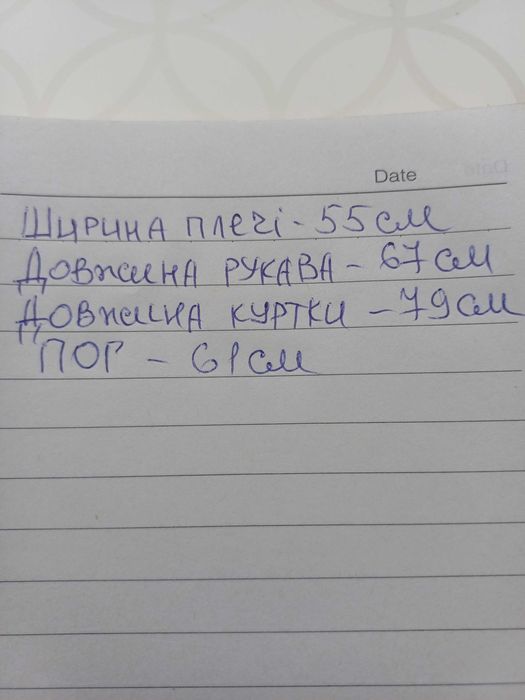 Date
Ширина плечі - 55 см
Довжина рукава - 67 см
Довжина куртки - 79 см
ПОГ - 61 см